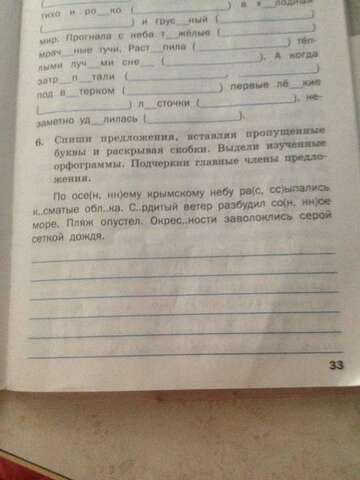 тихо и ро__ко (____________) в х__лодная
(____________) и грус__ный (____________)
мир. Прогнала с неба т__жёлые (____________)
мрач__ные тучи. Раст__пила (____________) тёп-
лыми луч__ми сне__ (____________). А когда
затр__п__тали (____________)
под в__терком (____________) первые лё__кие
(____________) л__сточки (____________), не-
заметно уд__лилась (____________).
6. Спиши предложения, вставляя пропущенные
буквы и раскрывая скобки. Выдели изученные
орфограммы. Подчеркни главные члены предло-
жения.
По осе(н, нн)ему крымскому небу ра(с, сс)ыпались
к..сматые обл..ка. С..рдитый ветер разбудил со(н, нн)ое
море. Пляж опустел. Окрес..ности заволоклись серой
сеткой дождя.
33